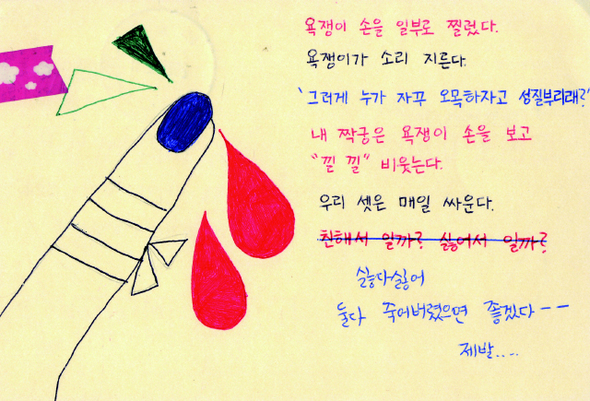 욕쟁이 손을 일부로 찔렀다.
욕쟁이가 소리 지른다.
'그러게 누가 자꾸 오목하자고 성질부리래?'
내 짝궁은 욕쟁이 손을 보고
"낄 낄" 비웃는다.
우리 셋은 매일 싸운다.
친해서 일까? 싫어서 일까?
싫다싫어
둘다 죽어버렸으면 좋겠다--
제발....